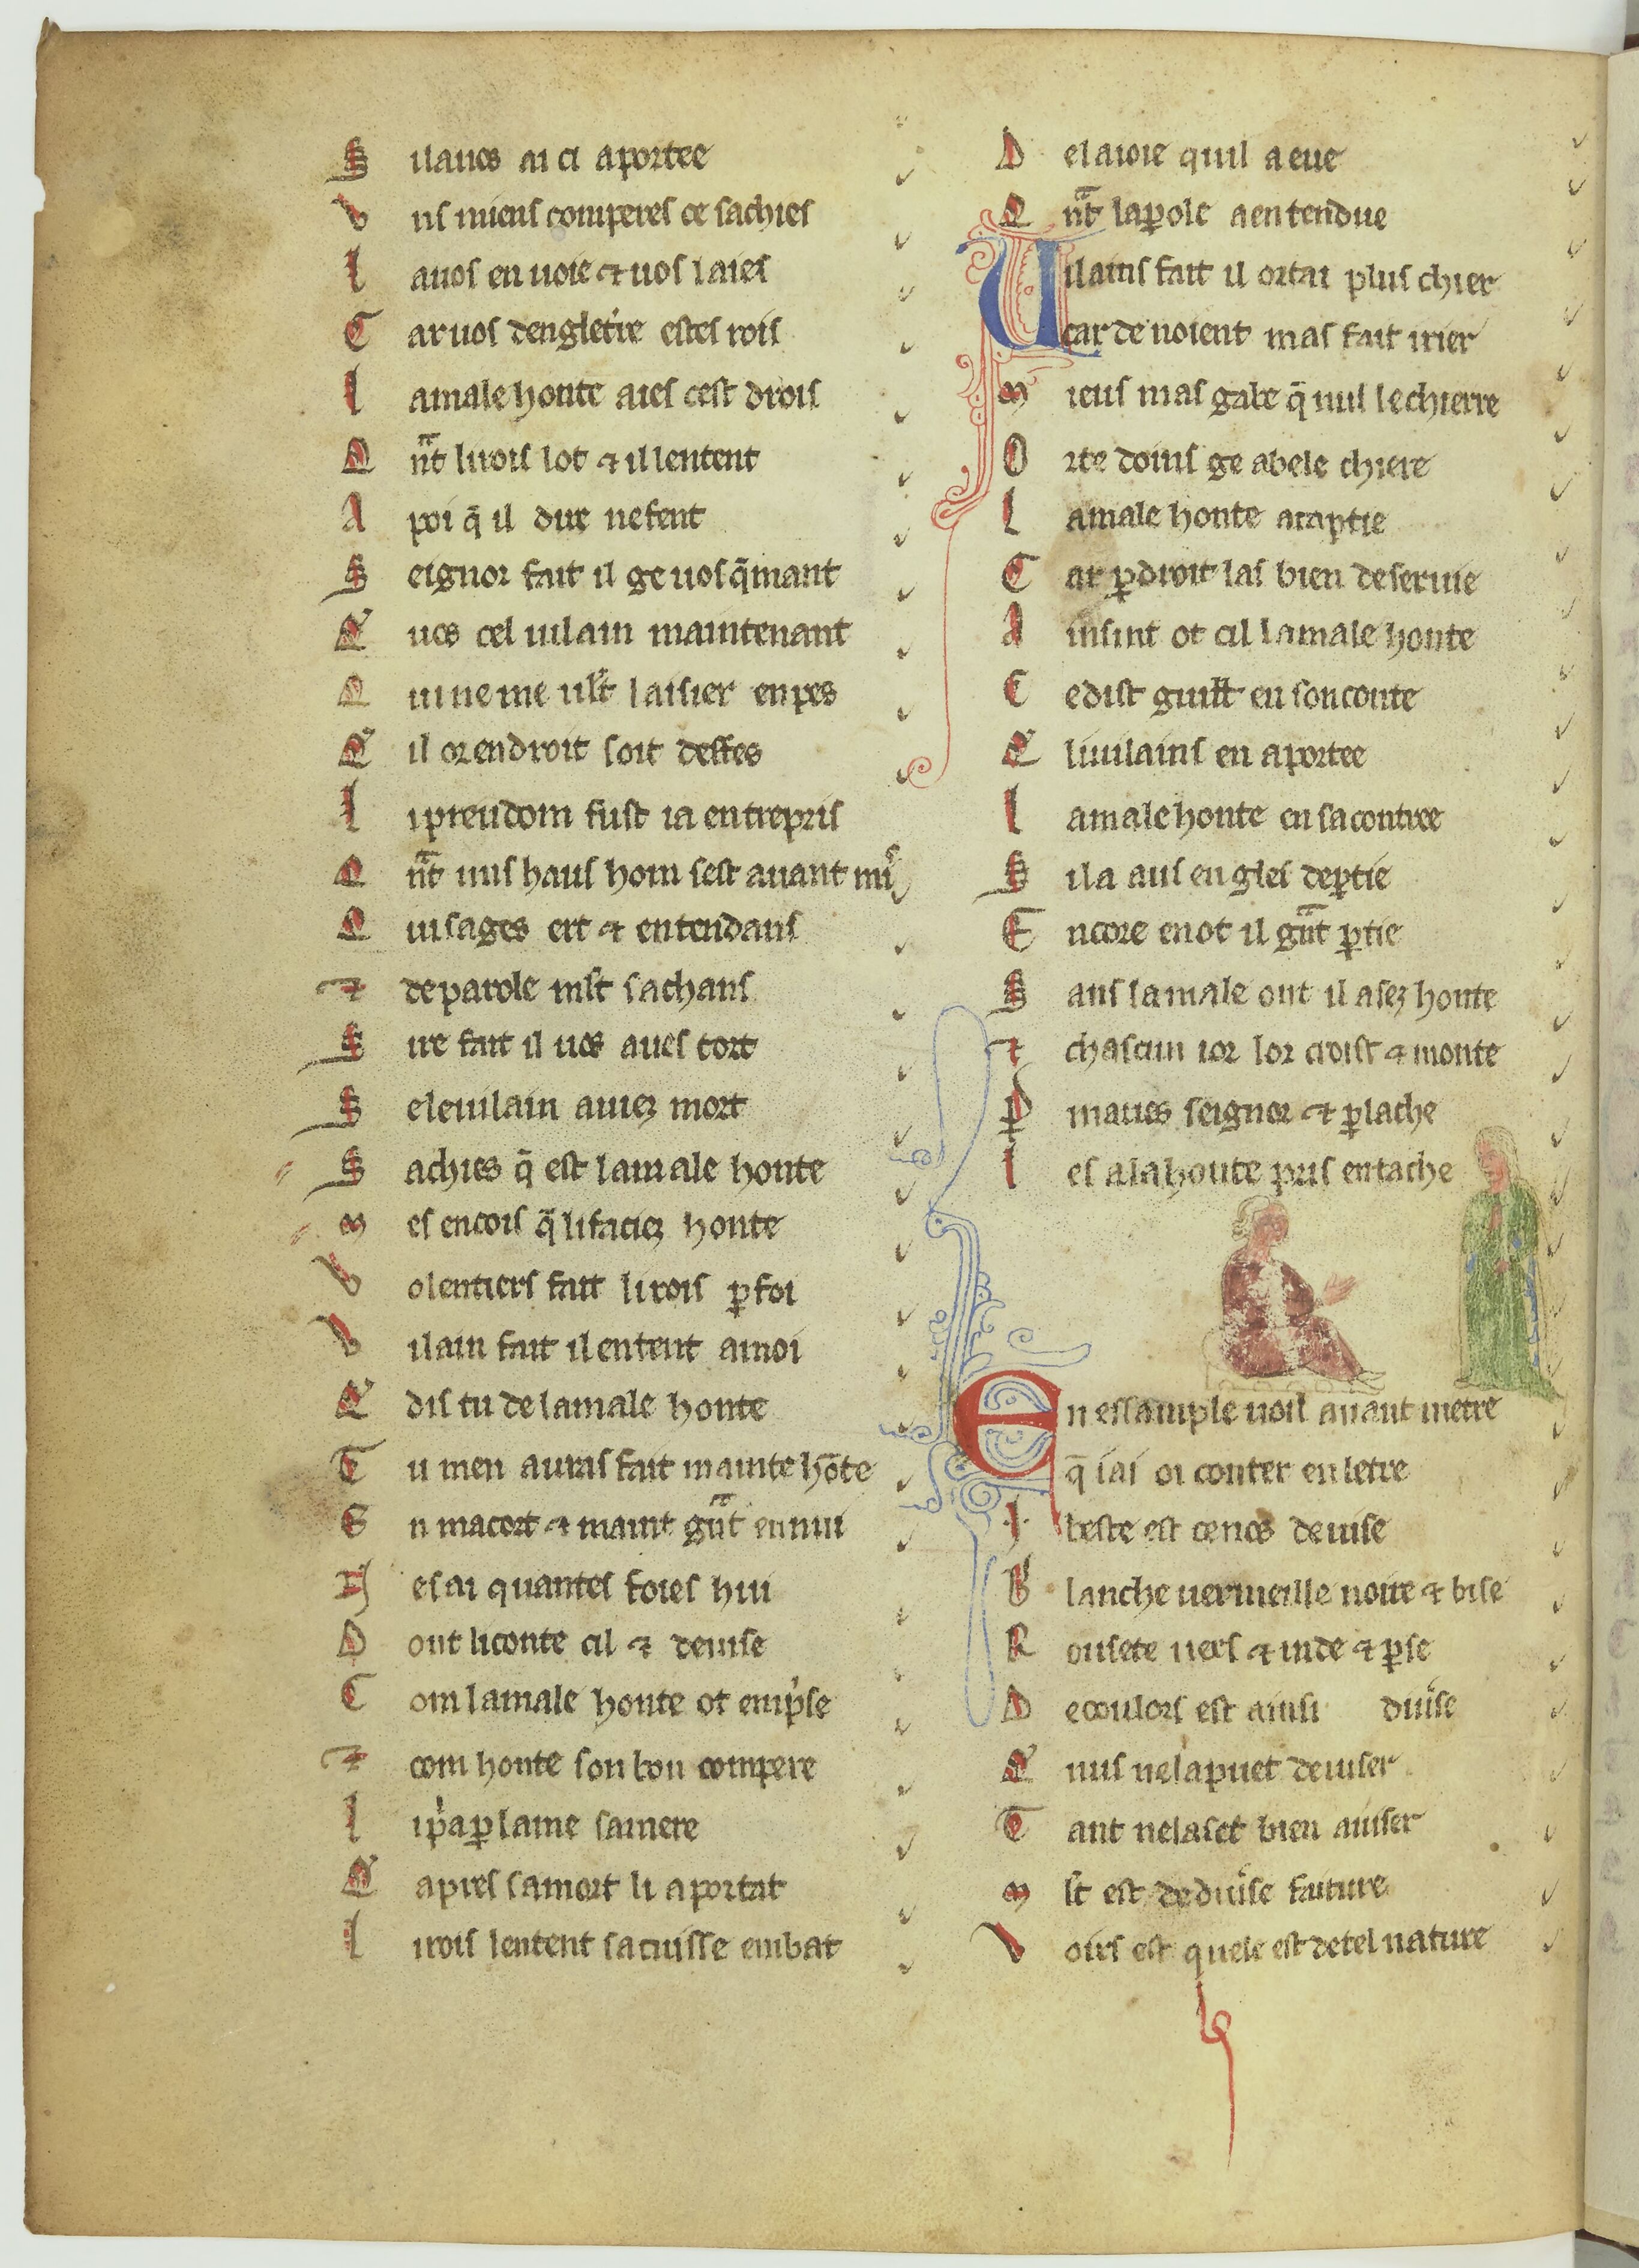 S ilauos ai ci aportee
V ns miens comperes ce sachies
L auos en uoie ⁊ uos laies
C ar uos denglet̾re estes rois
L amale honte aies cest drois
Q̃nt li rois lot ⁊ il lentent
A poi q̃ il due ne fent
S eignor fait il ge uos q̃mant
Q̾ uos cel uilain maintenant
Q ui ne me ult̾ laisier en pes
Q̾ il orendroit soit deffes
L i preudom fust ia entrepris
Q̃nt uns haus hom sest auant mis
Q ui sages ert ⁊ entendans
⁊ de parole mlt̾ sachans
S ire fait il uos aues tort
S e le uilain auiez mort
S achies q̃ est la male honte
M es encois q̃ li faciez honte
V olentiers fait li rois ꝑ foi
V ilain fait il entent a moi
Q̾ dis tu de la male honte
T u men auras fait mainte hõte
E n ma cort ⁊ maint gñt ennui
N e sai quantes foies hui
D ont li conte cil ⁊ deuise
C om la male honte ot emp̾se
⁊ com honte son bon compere
L i p̾a ꝑ lame sa mere
Q̾ apres sa mort li aportat
L i rois lentent sa cuisse embat
D e la ioie quil a eue
Q̃nt la ꝑole a entendue
Uilains fait il or tai plus chier
car de noient mas fait irier
M ieus mas gabe q̃ nul lechierre
O rte doins ge a bele chiere
L a male honte a ta ptie
C ar ꝑ droit las bien deseruie
A insint ot cil la male honte
C e dist guill̾t en son conte
Q̾ li uilains en aportee
L a male honte en sa contree
S i la aus engles deꝑtie
E ncore en ot il gñt ꝑtie
S ans la male ont il asez honte
⁊ chascun ior lor croist ⁊ monte
P̲ maues seignor ⁊ ꝑ lache
L es a la honte pris en tache
En essample uoil auant metre
q̃ iai oi conter en letre
·I· beste est ce nos deuise
B lanche uermeille noire ⁊ bise
R ousete uers ⁊ inde ⁊ ꝑse
D e coulors est ainsi diu̾se
Q̾ nus ne la puet deuiser
T ant ne la set bien auiser
M lt̾ est de diu̾se faiture
V oirs est quele est de tel nature